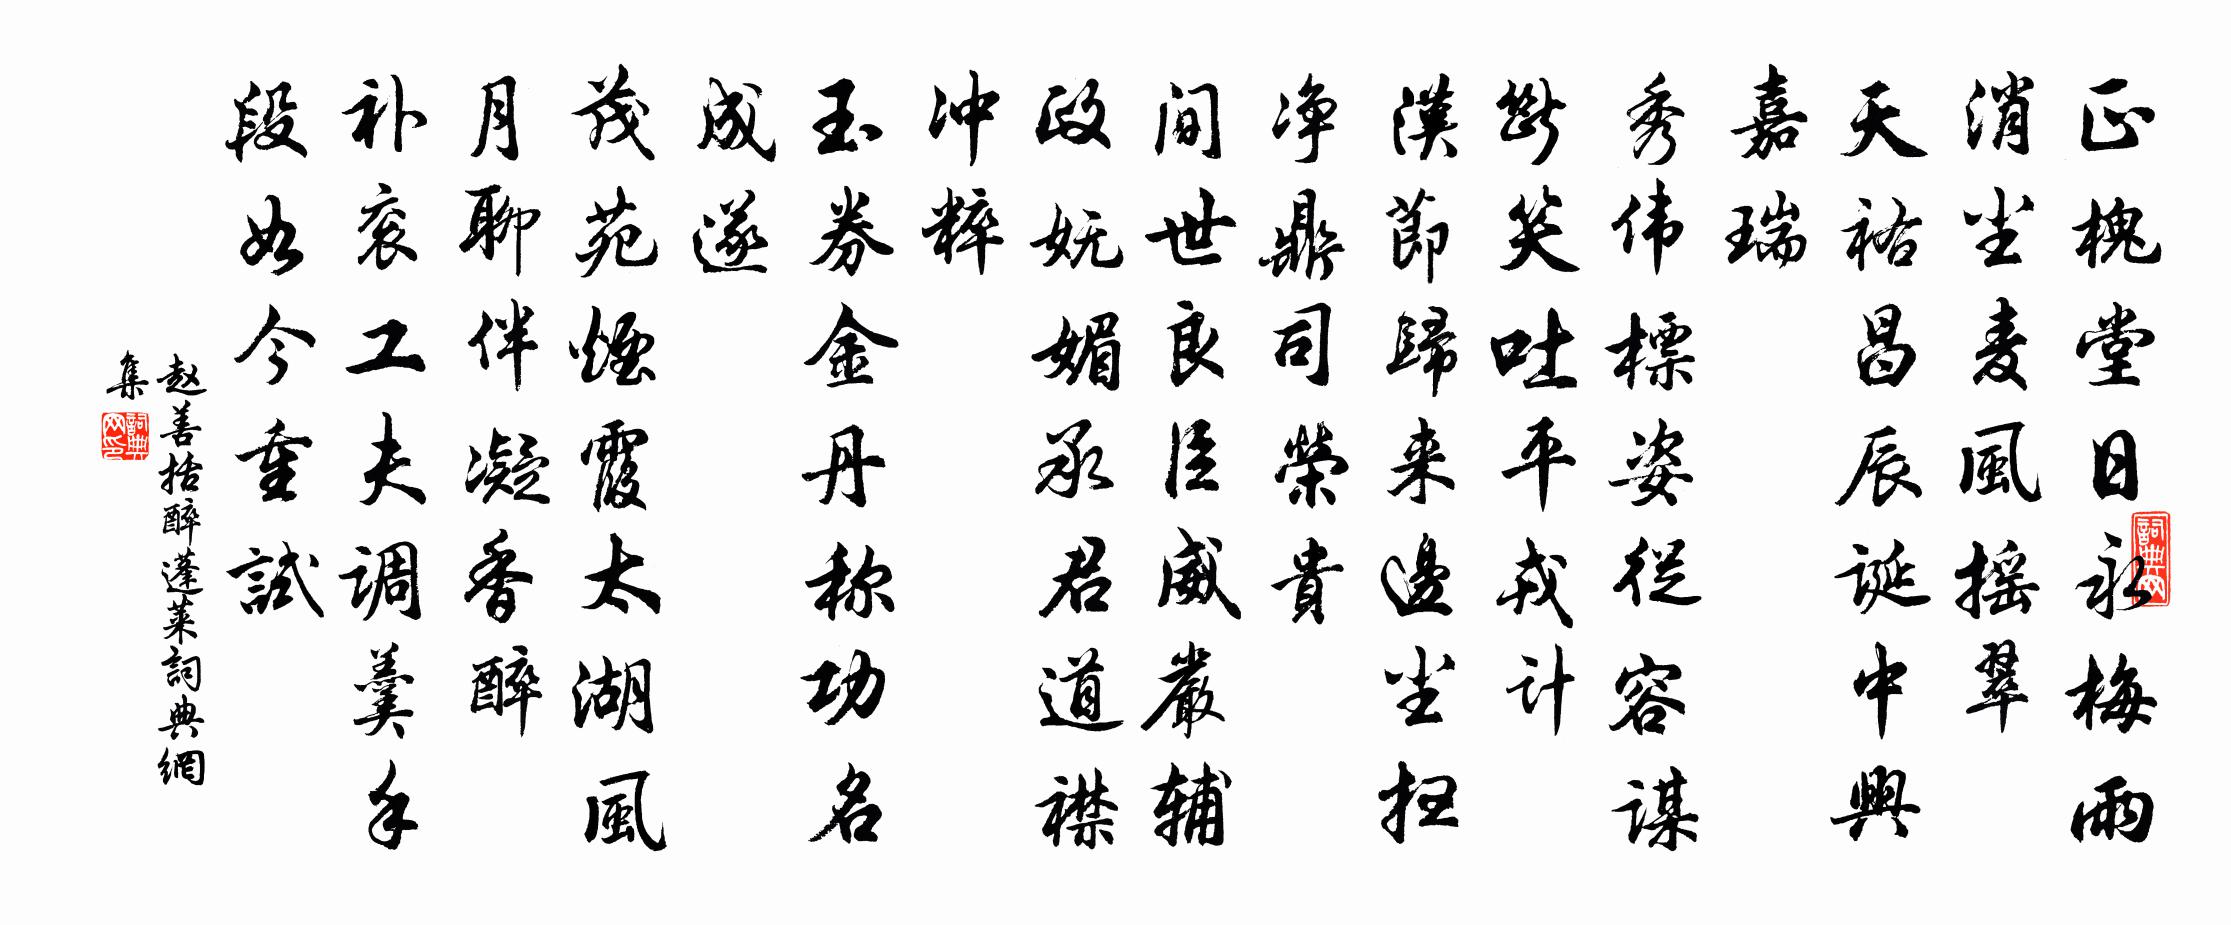 正槐堂日永梅雨
消尘麦風摇翠
天祐昌辰诞中興
嘉瑞
秀伟標姿從容谋
断笑吐平戎计
漢節歸来邊尘扫
净鼎司榮貴
间世良臣威嚴辅
政妩媚承君道襟
冲粹
玉券金丹称功名
成遂
茂苑煙霞太湖風
月聊伴凝香醉
补衮工夫调羹手
段如今重試
赵善括醉蓬莱詞典網
集
詞典网印
詞典网